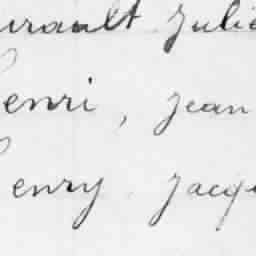 urault Julie
Henri, Jean
Henry Jacqu